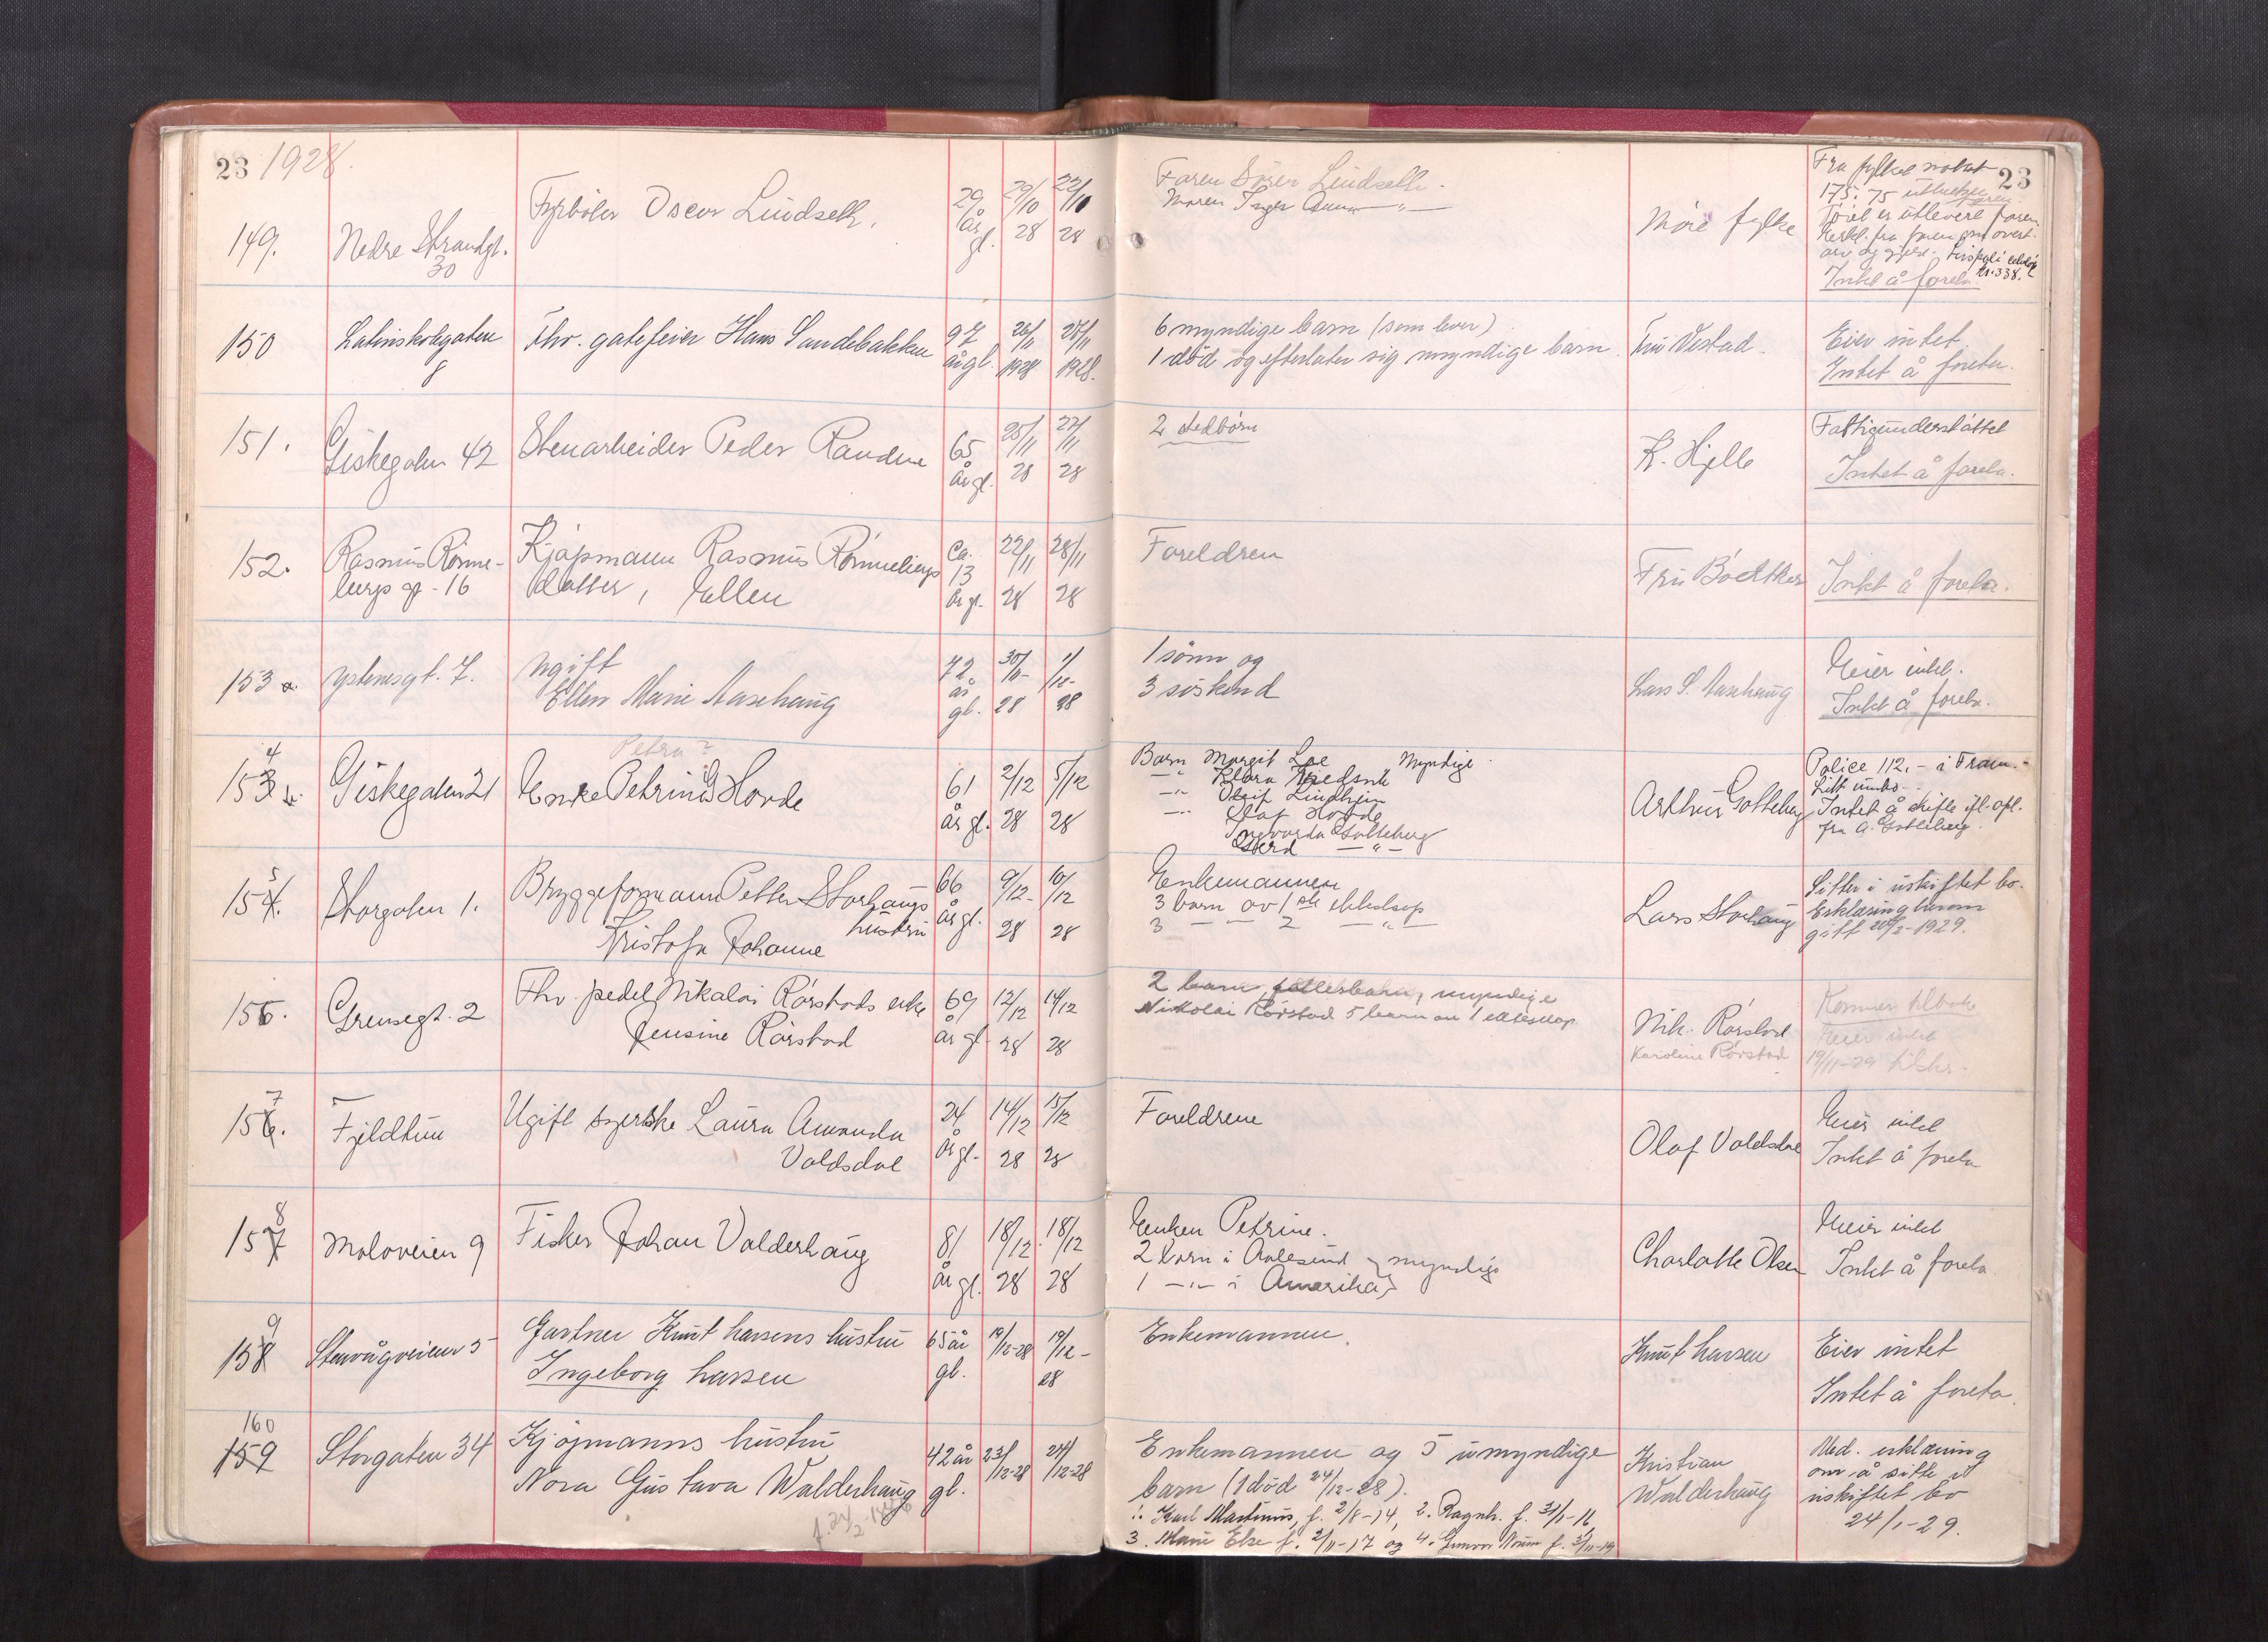 23 1928.
23
149.
Nedre Strandgt.
30
Fyrbøter Oscar Lindseth.
29 år gl.
29/10 28
22/11 28
Faren Sören Lindseth.
Moren Inger Anna —"—
Möre fylke
Fra fylket mottat
175.75
Töiet er utlevert faren.
Erkl. fra faren om overt.
arv og gjeld.
nr. 338.
Intet å foreta.
150
Latinskolegaten
8
Fhv. gatefeier Hans Sandebakken
97 år gl.
26/11 1928
28/11 1928.
6 myndige barn (som lever)
1 död og efterlater sig myndige barn.
Fru Vestad.
Eier intet.
Intet å foreta.
151.
Giskegaten 42
Stenarbeider Peder Randen
65 år gl.
25/11 28
27/11 28
2 stedbörn
K. Hjelle
Fattigunderstöttet
Intet å foreta.
152.
Rasmus Rönne-
bergs gt. 16
Kjöpmann Rasmus Rönnebergs
datter, Ellen
Ca. 13 år gl.
22/11 28
28/11 28
Foreldren
Fru Bödtker
Intet å foreta.
153 a.
Ystenesgt. 7.
Ugift
Ellen Marie Aasehaug
72 år gl.
30/11- 28
1/12- 28
1 sönn og
3 söskend
Lars S. Aasehaug
Eier intet.
Intet å foreta.
4
153 b.
Giskegaten 21
Petra?
Enke Petrine G Hovde
61 år gl.
2/12 28
5/12 28
Barn Margit Loe Myndige.
—"— Klara
—"— Olaf Hovde
Ingvarda Gotteberg
—"—
Arthur Gotteberg
Police 112,- i Fram.-
Litt innbo.
Intet å skifte ifl. opl.
fra A. Gotteberg.
5
154.
Storgaten 1.
Bryggeformann Petter Storhaugs
hustru
Kristofa Johanne
66 år gl.
9/12- 28
10/12 28
Enkemannen
3 barn av 1ste ekteskap
3 — — 2 —"—
Lars Storhaug
Sitter i uskiftet bo.
Erklæring herom
gitt 20/2-1929.
156.
Grensegt. 2
Fhv. pedel Nikolai Rörstads enke
Jensine Rörstad
69 år gl.
12/12 28
14/12 28
2 barn, fellesbarn, myndige
Nikolai Rörstad 5 barn av 1 ekteskap
Nik. Rörstad
Karoline Rörstad
Kommer tilbake
Eier intet
19/11-29
7
156.
Fjeldtun
Ugift syerske Laura Amanda
Valdsdal
24 år gl.
14/12 28
15/12 28
Foreldrene
Olaf Valdsdal
Eier intet
Intet å foreta
8
157
Moloveien 9
Fisker Johan Valderhaug
81 år gl.
18/12 28
18/12 28
Enken Petrine.
2 barn i Aalesund } myndige
1 —"— i Amerika }
Charlotte Olsen
Eier intet
Intet å foreta
9
158
Stenvågveien 5
Gartner Knut Larsens hustru
Ingeborg Larsen
65 år gl.
19/12-28
19/12-28
Enkemannen.
Knut Larsen
Eier intet
Intet å foreta.
160
159
Storgaten 34
Kjöpmanns hustru
Nora Gustava Walderhaug
42 år gl.
23/12-28
24/12-28
Enkemannen og 5 umyndige
barn (1 död 24/12-28).
1. Karl Martinus, f. 2/8-14, 2. Ragnh. f. 31/1-16
3. Marie Else f. 2/11-17 og 4. Gunvor f. 3/11-19
Kristian
Walderhaug
Med. erklæring
om å sitte i
uskiftet bo
24/1-29.